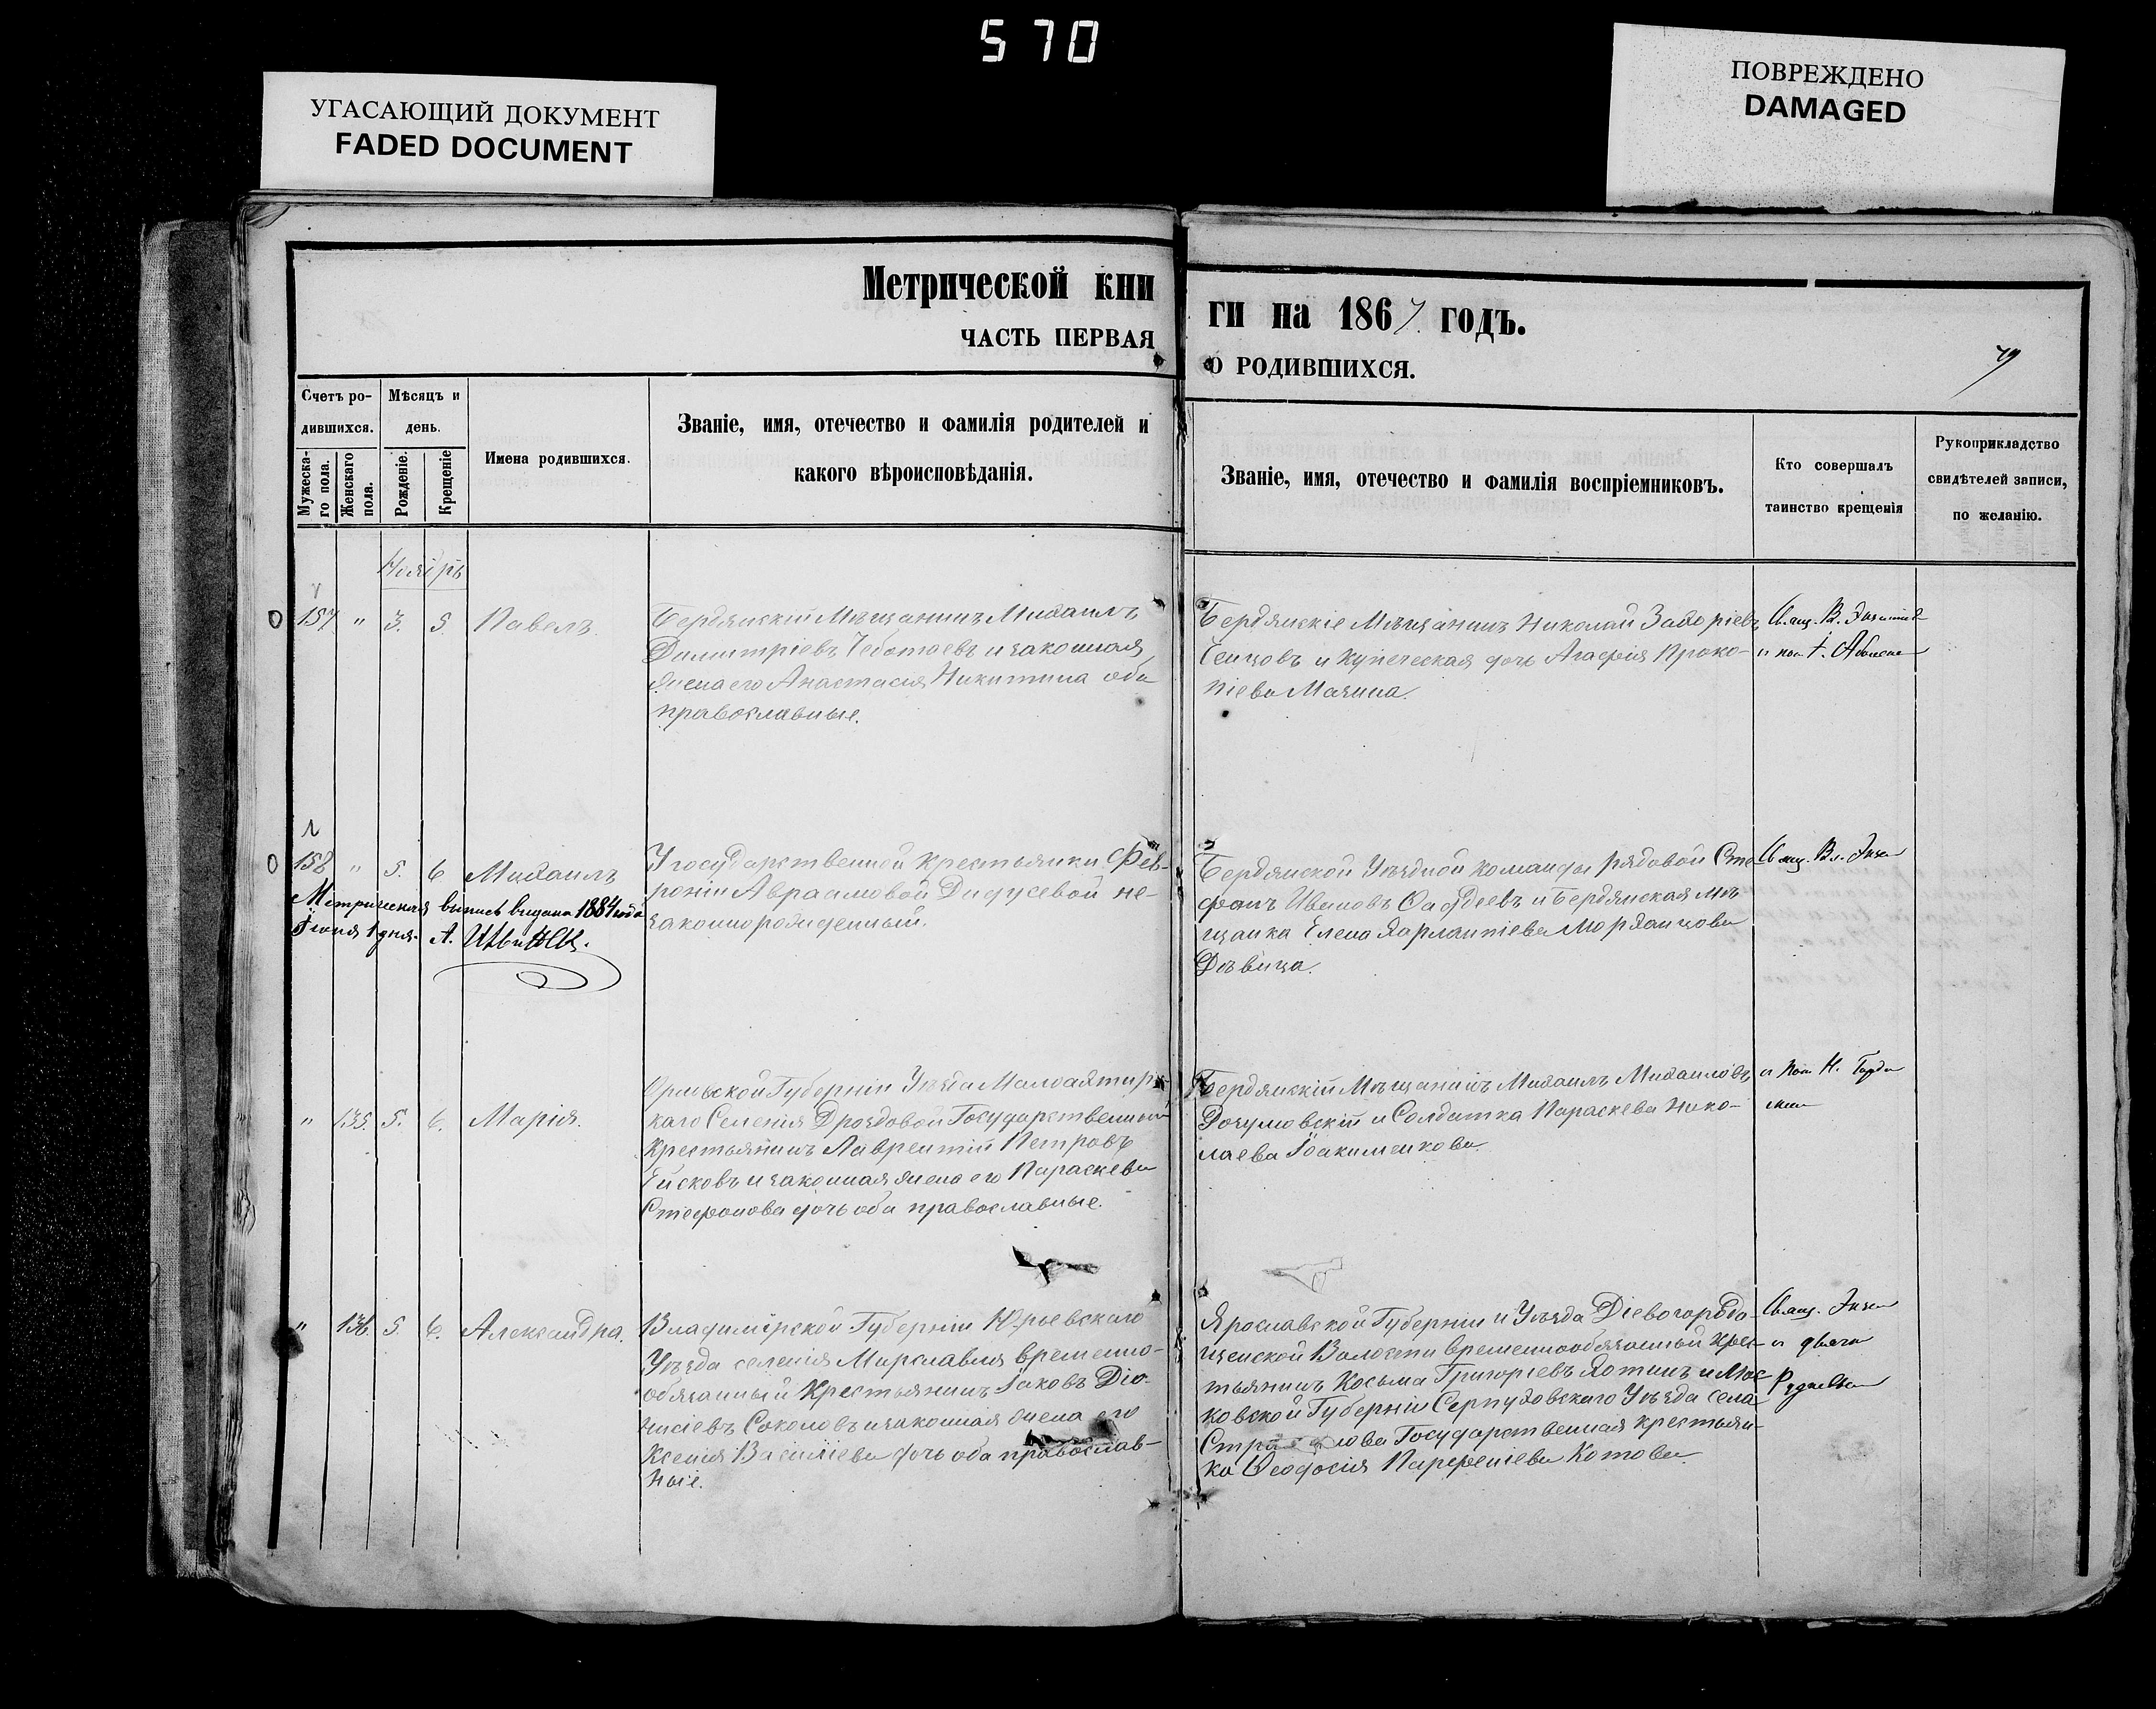 570
УГАСАЮЩИЙ ДОКУМЕНТ
FADED DOCUMENT
ПОВРЕЖДЕНО
DAMAGED
Метрической кни
ги на 1867 годъ.
ЧАСТЬ ПЕРВАЯ
О РОДИВШИХСЯ.
79
Счетъ ро-
дившихся.
Мужеска-
го пола.
Женскаго
пола.
Мѣсяцъ и
день.
Рожденіе.
Крещеніе
Имена родившихся.
Званіе, имя, отечество и фамилія родителей и
какого вѣроисповѣданія.
Званіе, имя, отечество и фамилія воспріемниковъ.
Кто совершалъ
таинство крещенія
Рукоприкладство
свидѣтелей записи,
по желанію.
Ноябрь
157 " 3. 5. Павелъ.
Бердянскій Мѣщанинъ Михаилъ
Димитріевъ Чеботаевъ и законная
жена его Анастасія Никитина оба
православные.
Бердянскіе Мѣщанинъ Николай
Сенцовъ и Купеческая дочь Агафія Проко-
піева Мазина.
Свящ. В.
и
158 " 5. 6 Михаилъ
Метрическая выпись выдана 1884 года
Іюня 1 дня. А.
У государственной крестьянки Фев-
роніи Авраамовой Дидусевой не-
законнорожденный.
Бердянской Уѣздной Команды рядовой Сте
фанъ Ивановъ Фаддеевъ и Бердянская мѣ
щанка Елена Харлампіева Морданцова
Дѣвица.
Свящ. Вл.
" 135. 5. 6. Марія.
Орловской Губерніи Уѣзда Малоархангельс
каго Селенія Дроздовой Государственный
Крестьянинъ Лаврентій Петровъ
и законная жена его Параскева
Стефанова дочь оба православные.
Бердянскій Мѣщанинъ Михаилъ Михаиловъ
Розумовскій и Солдатка Параскева Нико-
лаева Іоакименкова.
и Н.
" 136. 5. 6. Александра.
Владимірской Губерніи Юрьевскаго
Уѣзда селенія Мирславля временно-
обязанный Крестьянинъ Іаковъ Діо-
нисіевъ Соколовъ и законная жена его
Ксенія Васильева дочь оба православ-
ные.
Ярославской Губерніи и Уѣзда Діевогородо-
щенской Волости временнообязанный крес-
тьянинъ Косьма Григорьевъ Хотинъ и Мос
ковской Губерніи Серпуховскаго Уѣзда села
Государственная крестьян-
ка Ѳеодосія Парфеніева Котова.
Свящ.
и дьячекъ